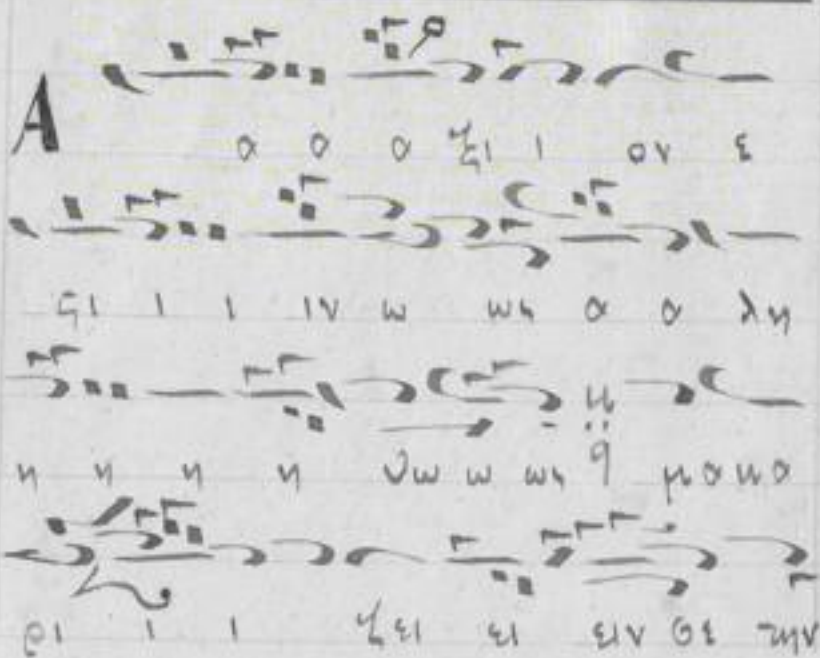 Α α α α ξι ι ον ε
ϛι ι ι ιν ω ως α α λη
η η η η θω ω ως μα κα
ρι ι ι ζει ει ειν σε την